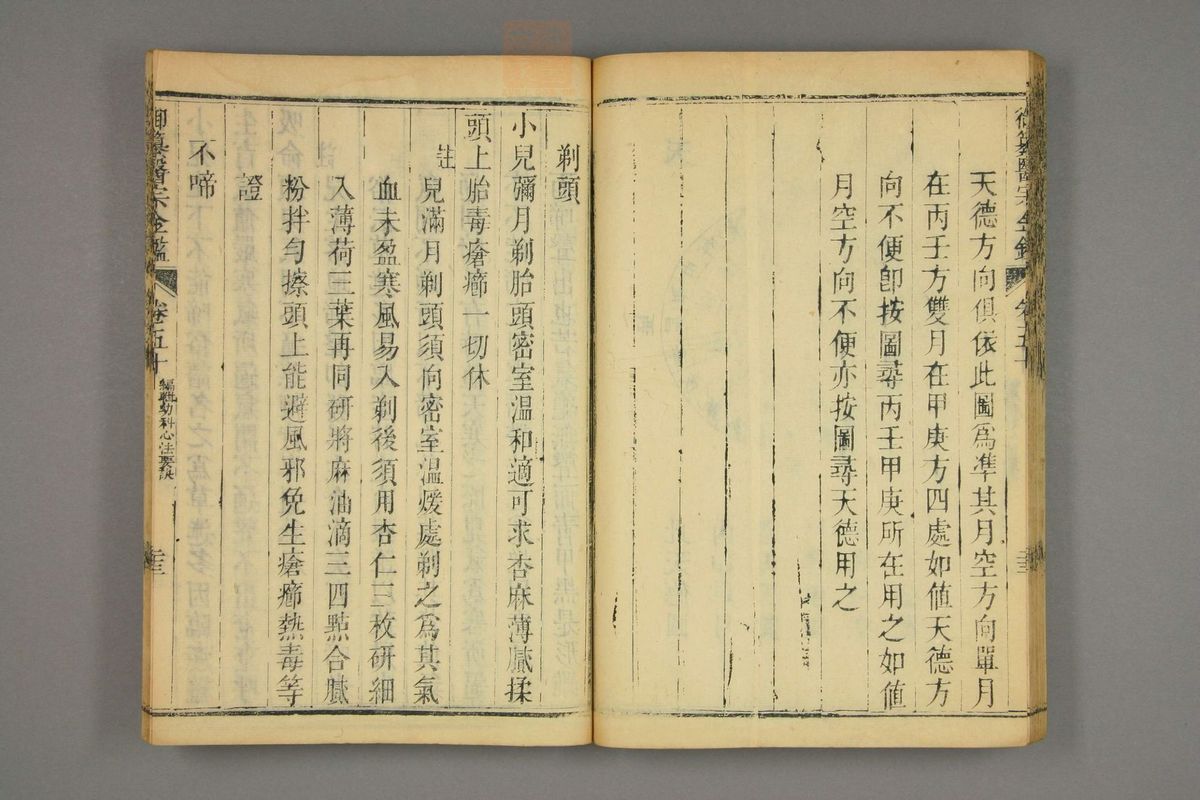 御纂醫宗金鑑 卷五十
天德方向俱依此圖爲準其月空方向單月
在丙壬方雙月在甲庚方四處如値天德方
向不便卽按圖尋丙壬甲庚所在用之如値
月空方向不便亦按圖尋天德用之
剃頭
小兒彌月剃胎頭密室溫和適可求杏麻薄膩揉
頭上胎毒瘡癤一切休
註
兒滿月剃頭須向密室溫煖處剃之爲其氣
血未盈寒風易入剃後須用杏仁三枚研細
入薄荷三葉再同研將麻油滴三四點合膩
粉拌勻擦頭上能避風邪免生瘡癤熱毒等
證
不啼
御纂醫宗金鑑 卷五十 編輯幼科心法要訣